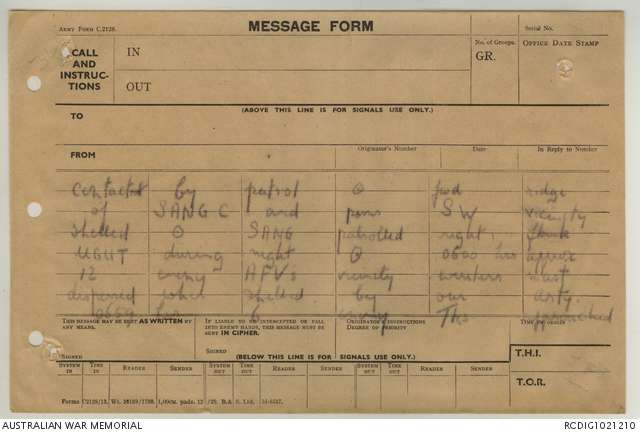 ARMY FORM C.2128.
MESSAGE FORM
Serial No.
CALL AND INSTRUC-TIONS
IN
OUT
No. of Groups.
GR.
OFFICE DATE STAMP
(ABOVE THIS LINE IS FOR SIGNALS USE ONLY.)
TO
FROM
Originator's Number
Date
In Reply to Number
contacted by patrol ⊙ fwd ridge
of SANG C and posns SW vicinity
shelled ⊙ SANG patrolled right
during night ⊙ 0600 hrs approx
12 enemy AFVs vicinity western
dispersed when shelled by our arty.
0659 hrs 6 enemy Tks approached
THIS MESSAGE MAY BE SENT AS WRITTEN BY ANY MEANS.
IF LIABLE TO BE INTERCEPTED OR FALL INTO ENEMY HANDS, THIS MESSAGE MUST BE SENT IN CIPHER.
ORIGINATOR'S INSTRUCTIONS DEGREE OF PRIORITY
TIME OF ORIGIN
SIGNED
SIGNED
(BELOW THIS LINE IS FOR SIGNALS USE ONLY.)
T.H.I.
T.O.R.
SYSTEM IN TIME IN READER SENDER SYSTEM OUT TIME OUT READER SENDER SYSTEM OUT TIME OUT READER SENDER
AUSTRALIAN WAR MEMORIAL
RCDIG1021210